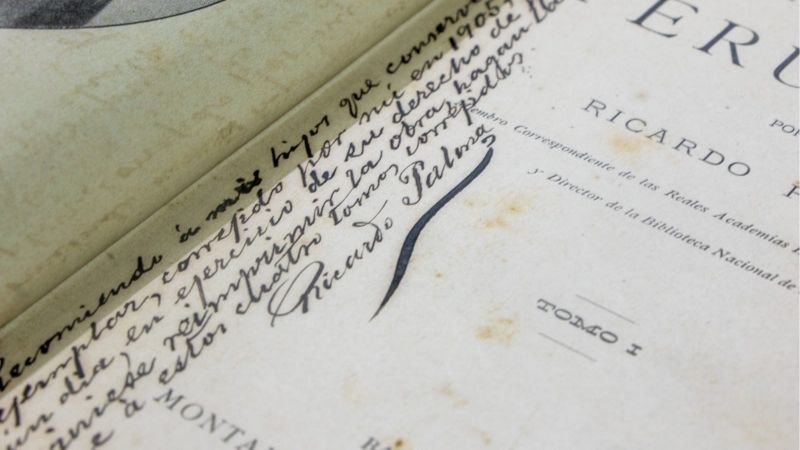 Recomiendo á mis hijos que conserv
ejemplar, corregido por mí en 1905,
un dia, en ejercicio de su derecho de
reimprimir la obra, hagan
e á estos cuatro tomos corregidos.
Ricardo Palma
ERU
PO
RICARDO P
embro Correspondiente de las Reales Academias
y Director de la Biblioteca Nacional de
TOMO I
MONTA
BA